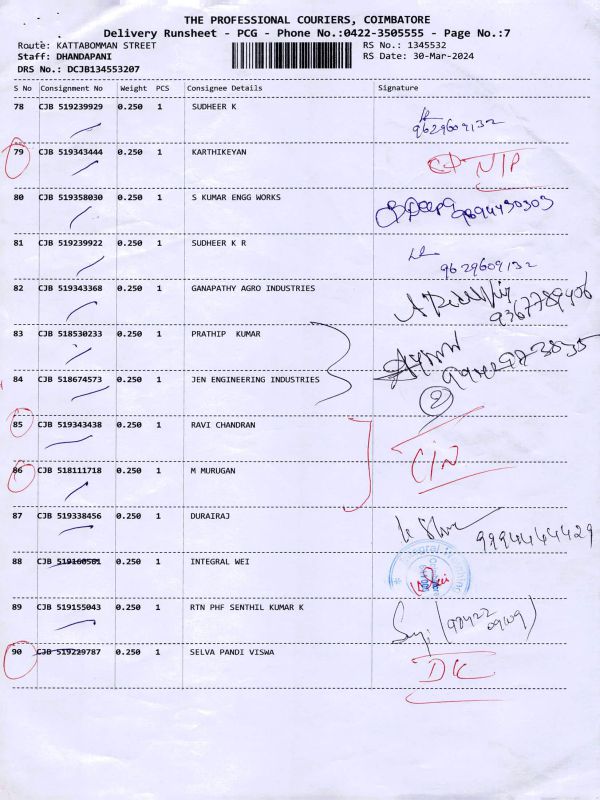 THE PROFESSIONAL COURIERS, COIMBATORE
Delivery Runsheet - PCG - Phone No.:0422-3505555 - Page No.:7
Route: KATTABOMMAN STREET RS No.: 1345532
Staff: DHANDAPANI RS Date: 30-Mar-2024
DRS No.: DCJB134553207
S No Consignment No Weight PCS Consignee Details Signature
78 CJB 519239929 0.250 1 SUDHEER K
9629609132
79 CJB 519343444 0.250 1 KARTHIKEYAN N/P
80 CJB 519358030 0.250 1 S KUMAR ENGG WORKS
81 CJB 519239922 0.250 1 SUDHEER K R
9629609132
82 CJB 519343368 0.250 1 GANAPATHY AGRO INDUSTRIES
9367789406
83 CJB 518530233 0.250 1 PRATHIP KUMAR
84 CJB 518674573 0.250 1 JEN ENGINEERING INDUSTRIES
2
85 CJB 519343438 0.250 1 RAVI CHANDRAN
C/N
86 CJB 518111718 0.250 1 M MURUGAN
87 CJB 519338456 0.250 1 DURAIRAJ
9994464429
88 CJB 519160581 0.250 1 INTEGRAL WEI
89 CJB 519155043 0.250 1 RTN PHF SENTHIL KUMAR K
90 CJB 519229787 0.250 1 SELVA PANDI VISWA
DL